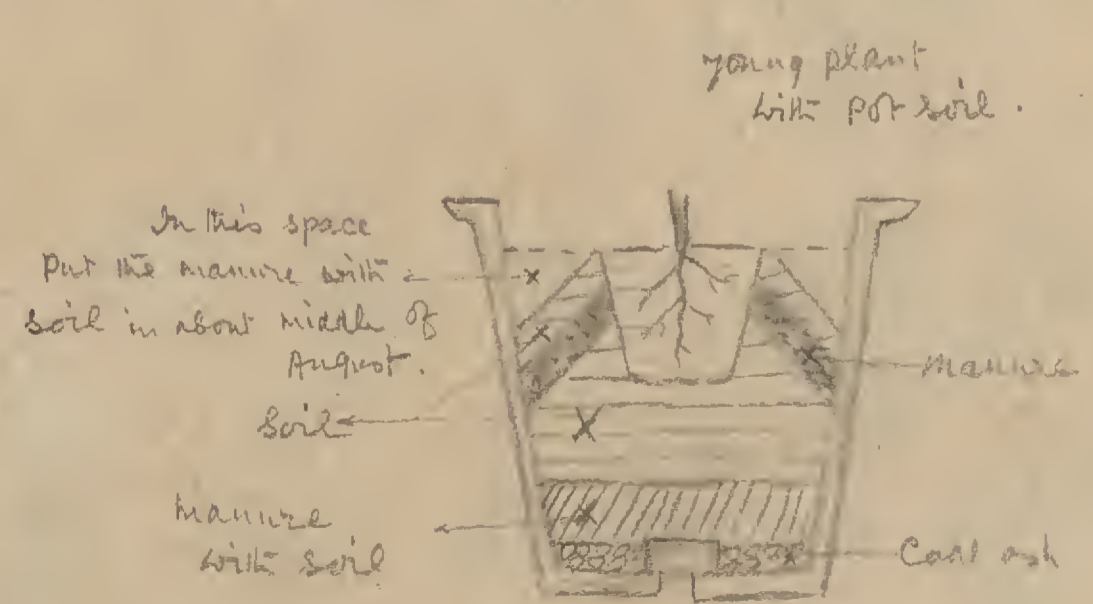 young plant
with pot soil.
In this space
Put the manure with
soil in about middle of
August.
manure
soil
manure
with soil
Coal ash